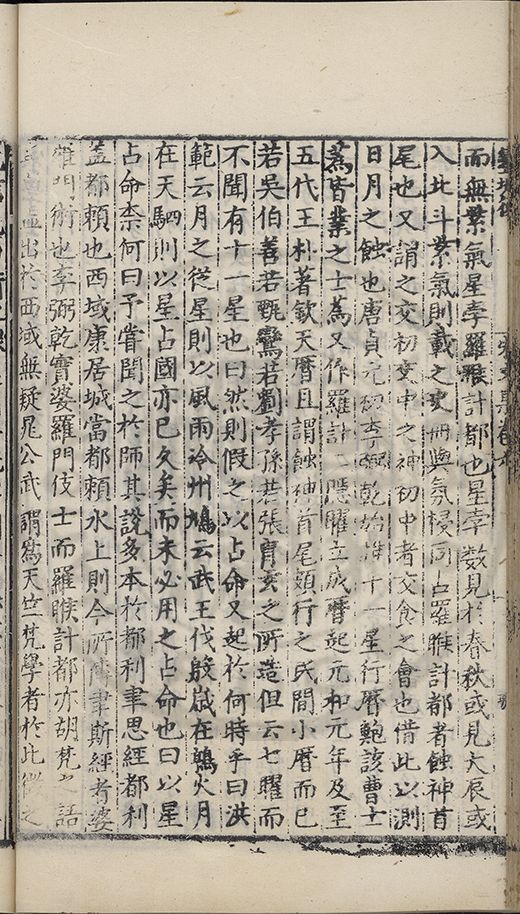 而無紫氣星孛羅睺計都也星孛數見於春秋或見大辰或
入北斗紫氣則載之史冊與氛祲同占羅睺計都者蝕神首
尾也又謂之交初交中之神初中者交食之會也借此以測
日月之蝕也唐貞元初李弼乾始推十一星行曆鮑該曹士
蒍皆業之士蒍又作羅計二隱曜立成曆起元和元年及至
五代王朴著欽天曆且謂蝕神首尾頗行之民間小曆而已
若吳伯善若甄鸞若劉孝孫若張胄玄之所造但云七曜而
不聞有十一星也曰然則假之以占命又起於何時乎曰洪
範云月之從星則以風雨泠州鳩云武王伐殷歲在鶉火月
在天駟則以星占國亦已久矣而未必用之占命也曰以星
占命柰何曰予嘗聞之於師其說多本於都利聿思經都利
蓋都賴也西域康居城當都賴水上則今所傳聿斯經者婆
羅門術也李弼乾實婆羅門伎士而羅睺計都亦胡梵之語
蓋出於西域無疑晁公武 謂為天竺梵學者於此徵之